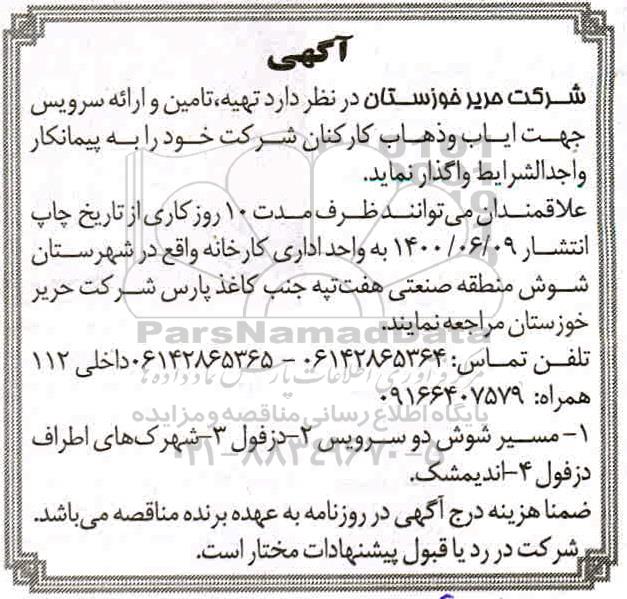 آگهی
شرکت حریر خوزستان در نظر دارد تهیه، تامین و ارائه سرویس
جهت ایاب وذهاب کارکنان شرکت خود را به پیمانکار
واجدالشرایط واگذار نماید.
علاقمندان می‌توانند ظرف مدت ۱۰ روز کاری از تاریخ چاپ
انتشار ۱۴۰۰/۰۶/۰۹ به واحد اداری کارخانه واقع در شهرستان
شوش منطقه صنعتی هفت‌تپه جنب کاغذ پارس شرکت حریر
خوزستان مراجعه نمایند.
ParsNamadData
تلفن تماس: ۰۶۱۴۲۸۶۵۳۶۴ – ۰۶۱۴۲۸۶۵۳۶۵ داخلی ۱۱۲
همراه: ۰۹۱۶۶۴۰۷۵۷۹
پایگاه اطلاع رسانی مناقصه و مزایده
۱- مسیر شوش دو سرویس ۲-دزفول ۳-شهرک‌های اطراف
۰۲۱-۸۸۳۴۹۶۷۰-۵
دزفول ۴-اندیمشک.
ضمنا هزینه درج آگهی در روزنامه به عهده برنده مناقصه می‌باشد.
شرکت در رد یا قبول پیشنهادات مختار است.